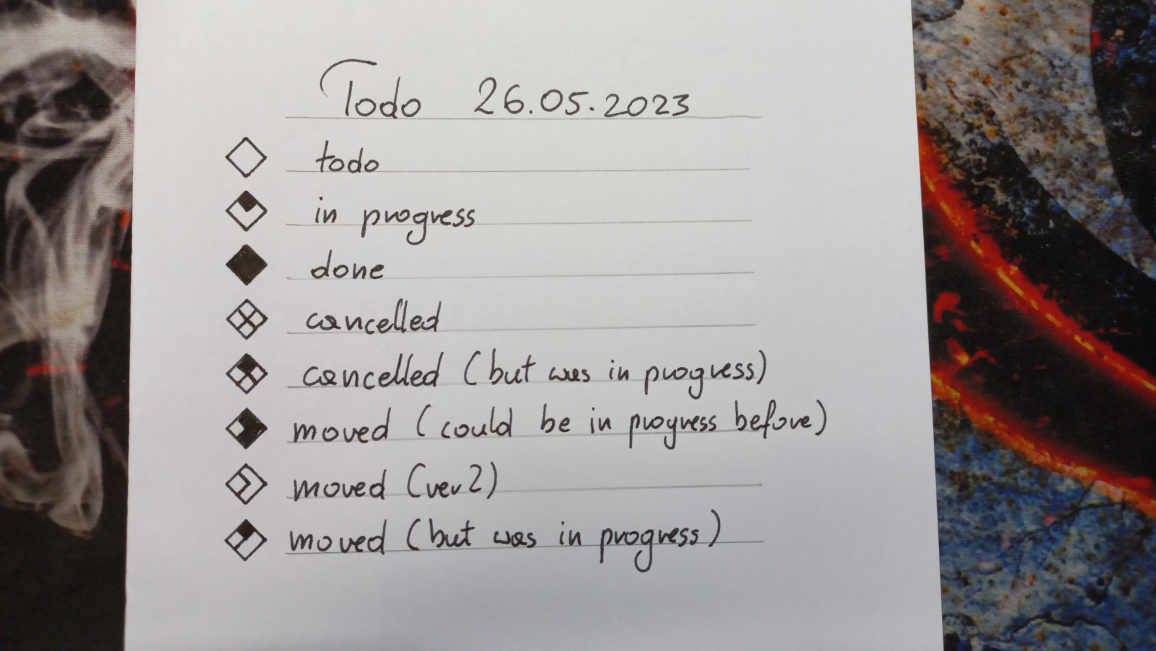 Todo 26.05.2023
todo
in progress
done
cancelled
cancelled (but was in progress)
moved (could be in progress before)
moved (ver2)
moved (but was in progress)